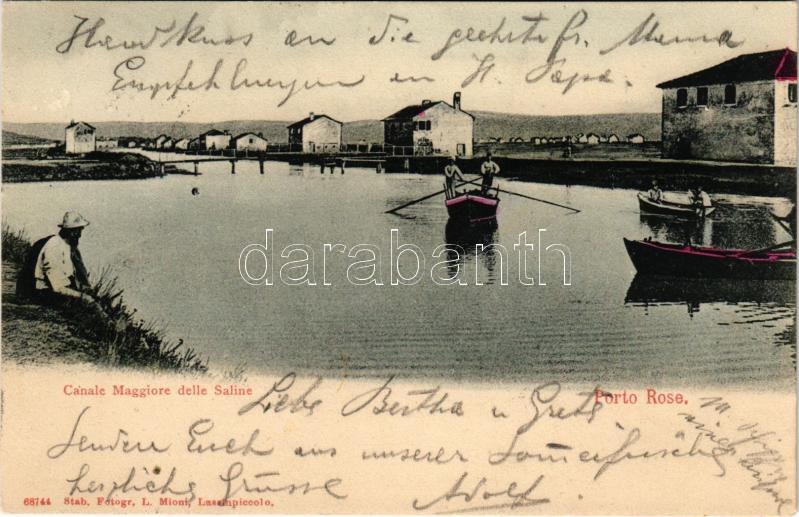 Handkuss an die geehrte Fr. Mama
Empfehlungen an H. Papa.
darabanth
Canale Maggiore delle Saline
Porto Rose.
Liebe Bertha u Grete
Senden Euch aus unserer Sommerfrische
herzliche Grüsse Adolf
68744 Stab. Fotogr. L. Mioni, Lussinpiccolo.